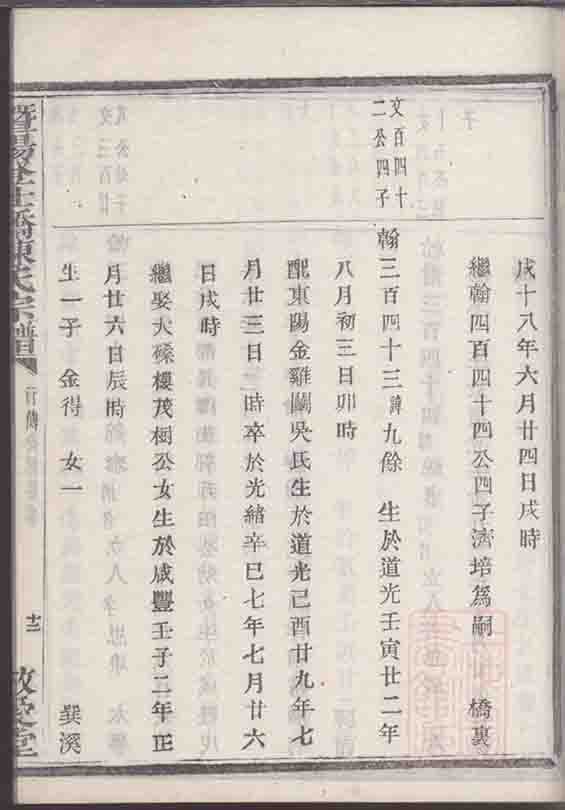 戌十八年六月廿四日戌時
繼翰四百四十四公四子濟培爲嗣 橋裏
文百四十
二公四子
翰三百四十三諱九餘 生於道光壬寅廿二年
八月初三日卯時
配東陽金雞關吳氏生於道光己酉廿九年七
月廿三日 時卒於光緒辛巳七年七月廿六
日戌時
繼娶大磉樓茂樹公女生於咸豐壬子二年正
月廿六日辰時
生一子金得 女一 巽溪
暨陽 橋陳氏宗譜
行傳
十二
敬愛堂